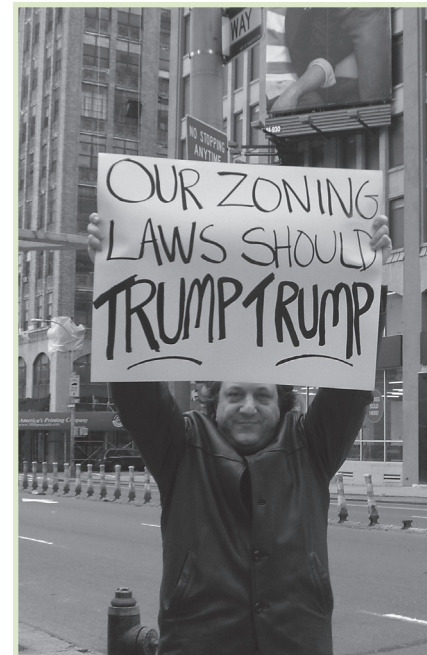 WAY
NO STOPPING
ANYTIME
OUR ZONING
LAWS SHOULD
TRUMP TRUMP
America's Printing Company